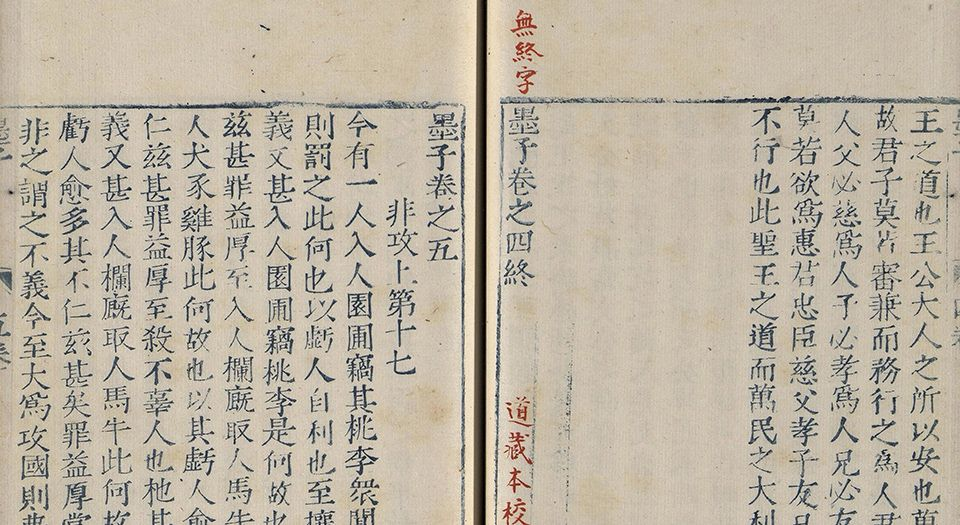 王之道也王公大人之所以安也萬
故君子莫若審兼而務行之爲人君
人父必慈爲人子必孝爲人兄必友
莫若欲爲惠君忠臣慈父孝子友兄
不行也此聖王之道而萬民之大利
無終字
墨子卷之四終
道藏本校
墨子卷之五
非攻上第十七
今有一人入人園圃竊其桃李衆聞
則罰之此何也以虧人自利也至攘
義又甚入人園圃竊桃李是何故也
茲甚罪益厚至入人欄廐取人馬牛
人犬豕雞豚此何故也以其虧人愈
仁茲甚罪益厚至殺不辜人也扡其
義又甚入人欄廐取人馬牛此何故
虧人愈多其不仁茲甚矣罪益厚當
非之謂之不義今至大爲攻國則弗